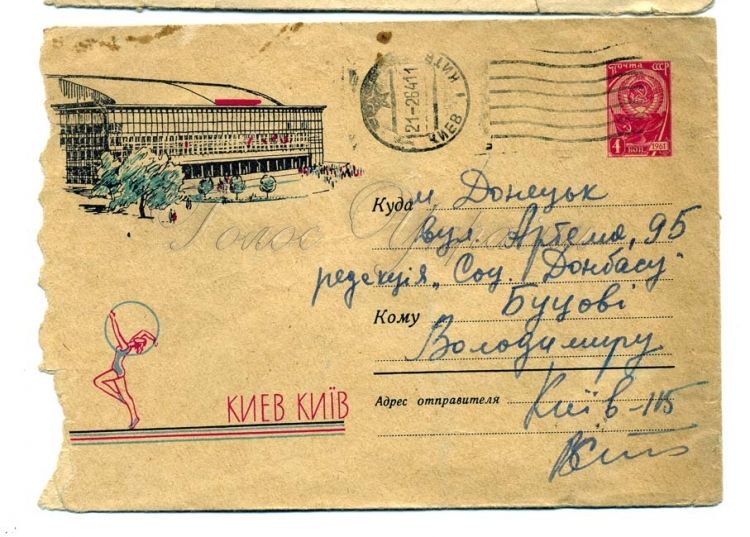 ПОЧТА СССР
4 КОП. 1961
КИЇВ
21-2641 1
КИЕВ
Голос
Куда м. Донецьк
вул. Артема, 95
редакція „Соц. Донбасу"
Кому Буцові
Володимиру
Адрес отправителя Київ-115
КИЕВ КИЇВ